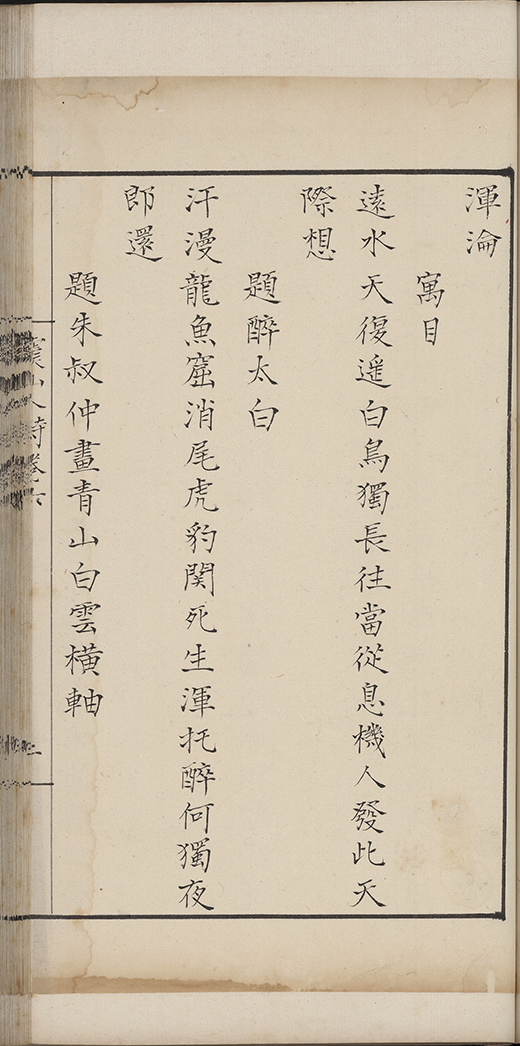 渾淪
寓目
遠水天復遥白鳥獨長往當從息機人發此天
際想
題醉太白
汗漫龍魚窟消尾虎豹関死生渾托醉何獨夜
郎還
題朱叔仲畫青山白雲横軸